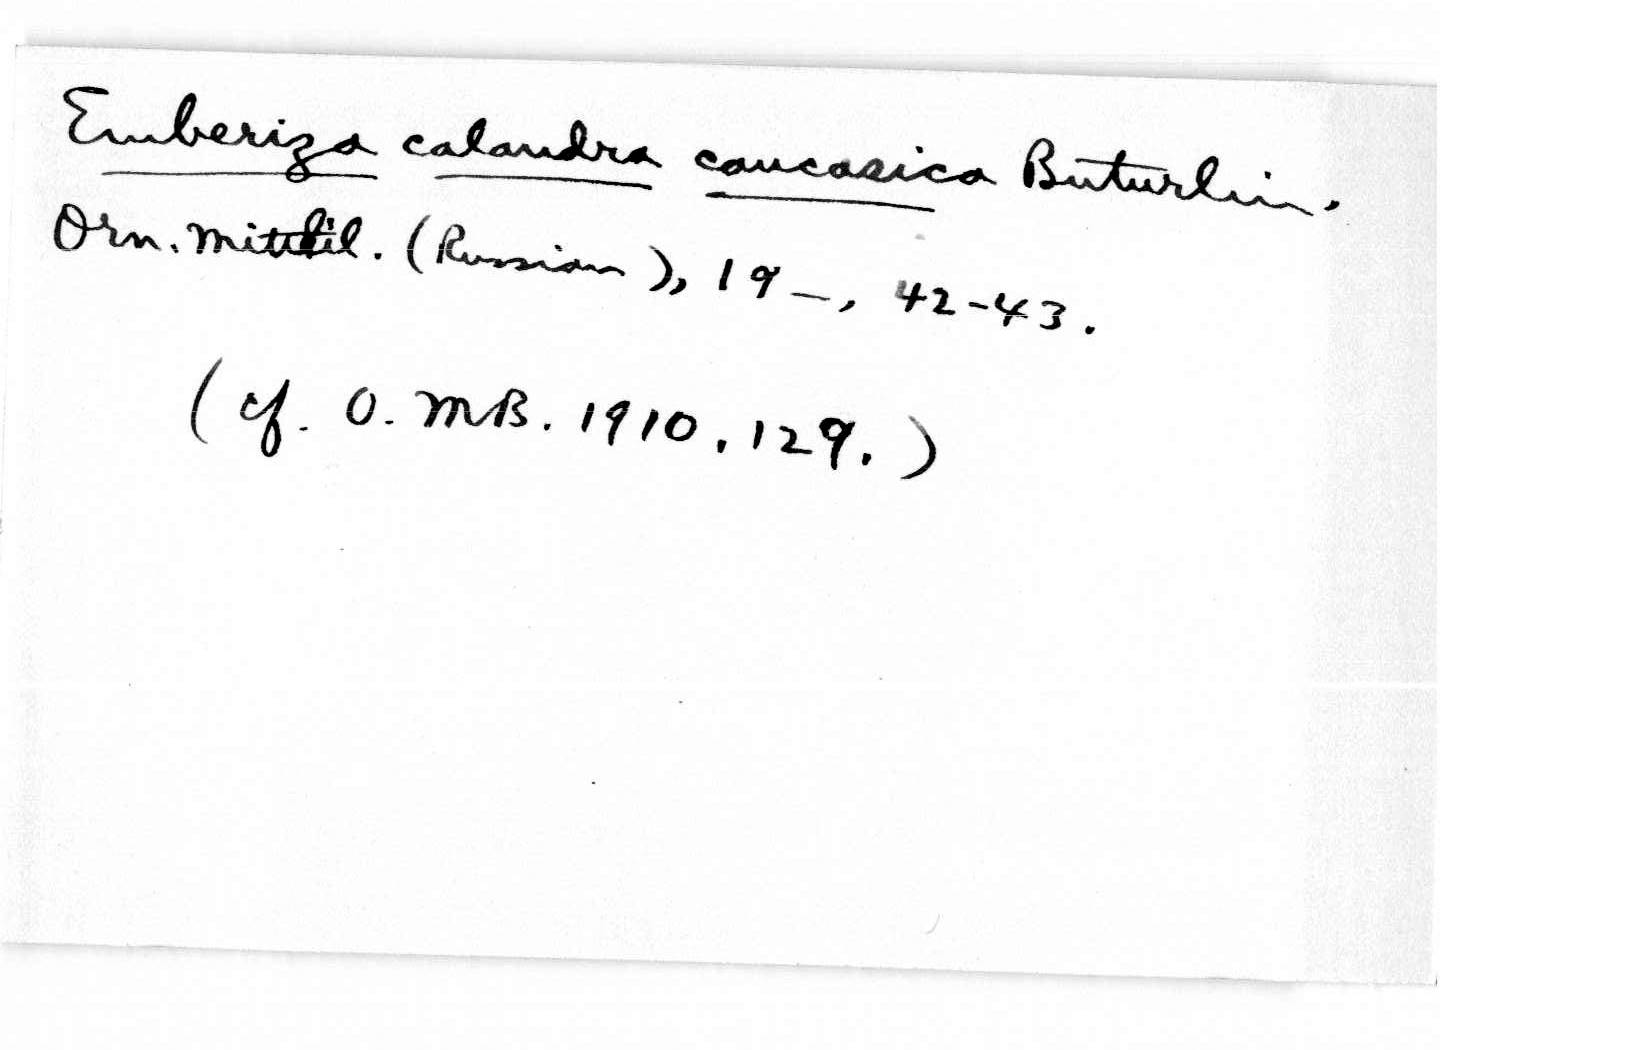 Emberiza calandra caucasica Buturlin.
Orn. Mitteil. (Russian), 19—, 42-43.
(cf. O. MB. 1910, 129.)